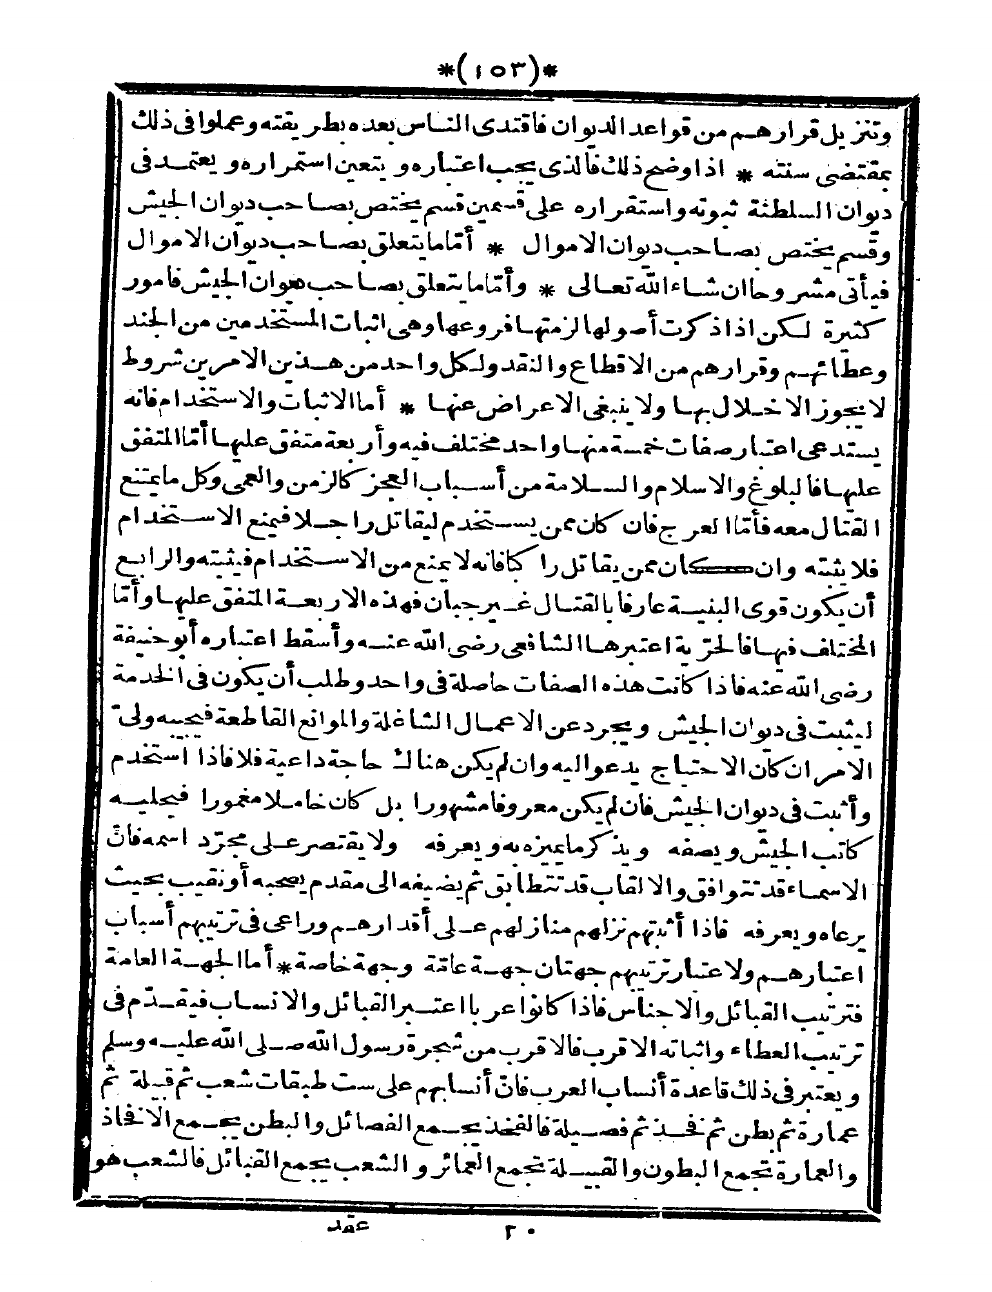 *(١٥٣)*
وتنزيل قرارهم من قواعد الديوان فاقتدى الناس بعده بطريقته وعملوا فى ذلك
بمقتضى سنته * اذا وضح ذلك فالذى يجب اعتباره ويتعين استمراره ويعتمد فى
ديوان السلطنة ثبوته واستقراره على قسمين قسم يختص بصاحب ديوان الجيش
وقسم يختص بصاحب ديوان الاموال * أمّا ما يتعلق بصاحب ديوان الاموال
فيأتى مشروحا ان شاء الله تعالى * وأمّا ما يتعلق بصاحب ديوان الجيش فامور
كثيرة لكن اذا ذكرت أصولها لزمتها فروعها وهى اثبات المستخدمين من الجند
وعطائهم وقرارهم من الاقطاع والنقد ولكل واحد من هذين الامرين شروط
لا يجوز الاخلال بها ولا ينبغى الاعراض عنها * أما الاثبات والاستخدام فانه
يستدعى اعتبار صفات خمسة منها واحد مختلف فيه وأربعة متفق عليها أمّا المتفق
عليها فالبلوغ والاسلام والسلامة من أسباب العجز كالزمن والعمى وكل ما يمتنع
القتال معه فأمّا العرج فان كان ممن يستخدم ليقاتل راجلا فيمنع الاستخدام
فلا يثبته وان كان ممن يقاتل راكبا فانه لا يمنع من الاستخدام فيثبته والرابع
أن يكون قوى البنية عارفا بالقتال غير جبان فهذه الاربعة المتفق عليها وأمّا
المختلف فيها فالحرّية اعتبرها الشافعى رضى الله عنه وأسقط اعتباره أبو حنيفة
رضى الله عنه فاذا كانت هذه الصفات حاصلة فى واحد وطلب أن يكون فى الخدمة
ليثبت فى ديوان الجيش ويجرد عن الاعمال الشاغلة والموانع القاطعة فيجيبه ولىّ
الامر ان كان الاحتياج يدعو اليه وان لم يكن هناك حاجة داعية فلا فاذا استخدم
وأثبت فى ديوان الجيش فان لم يكن معروفا مشهورا بل كان خاملا مغمورا فيحليه
كاتب الجيش ويصفه ويذكر ما يميزه به ويعرفه ولا يقتصر على مجرّد اسمه فانّ
الاسماء قد تتوافق والالقاب قد تتطابق ثم يضيفه الى مقدم يصحبه أو نقيب بحيث
يرعاه ويعرفه فاذا أثبتهم نزلهم منازلهم على أقدارهم وراعى فى ترتيبهم أسباب
اعتبارهم ولاعتبار ترتيبهم جهتان جهة عامّة وجهة خاصة * أما الجهة العامة
فترتيب القبائل والاجناس فاذا كانوا عربا اعتبر القبائل والانساب فيقدّم فى
ترتيب العطاء واثباته الاقرب فالاقرب من شجرة رسول الله صلى الله عليه وسلم
ويعتبر فى ذلك قاعدة أنساب العرب فانّ أنسابهم على ست طبقات شعب ثم قبيلة ثم
عمارة ثم بطن ثم فخذ ثم فصيلة فالفخذ يجمع الفصائل والبطن يجمع الافخاذ
والعمارة تجمع البطون والقبيلة تجمع العمائر والشعب يجمع القبائل فالشعب هو
٢٠ عقد